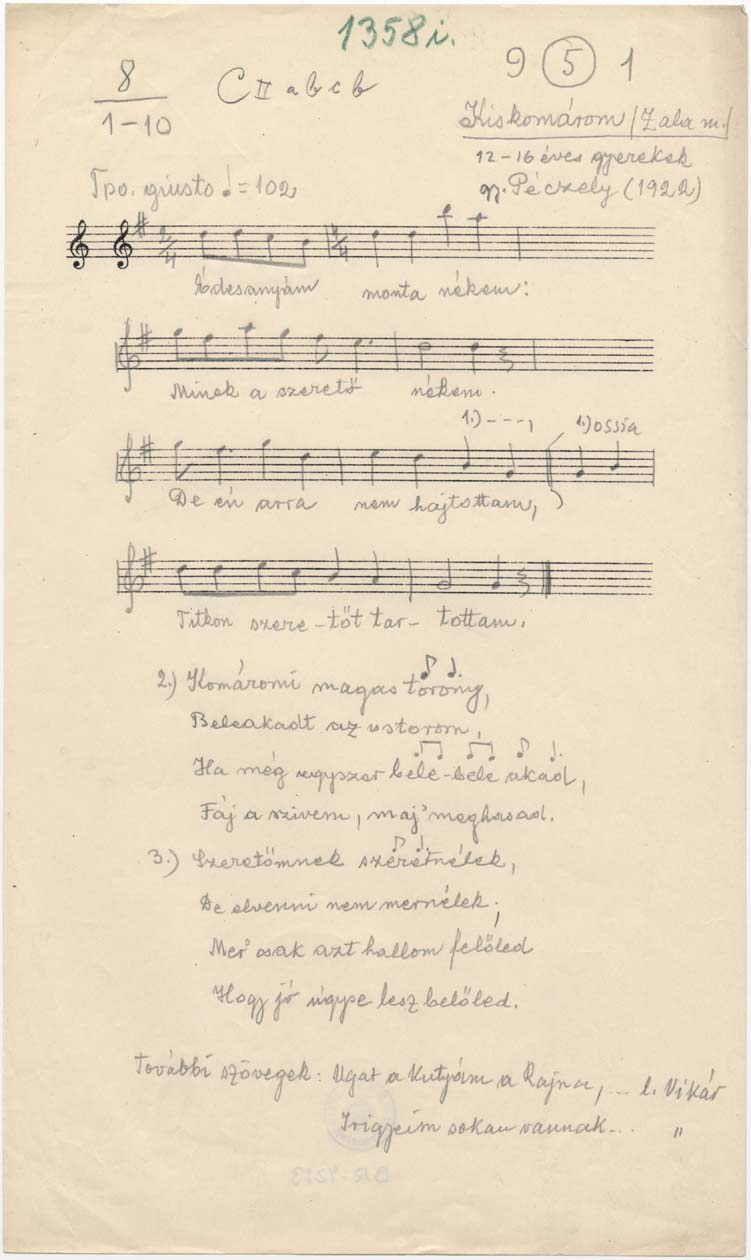 1358i.
8 C II a b c b 9 5 1
1-10
Kiskomárom /Zala m./
12-16 éves gyerekek
gy. Péczely (1922)
Tpo. giusto ♩= 102
2/4 4/4
Édesanyám monta nékem:
Minek a szerető nékem.
1.) - - - , 1.) ossia
De én arra nem hajtottam,
Titkon szere-töt tar- tottam.
2.) Komáromi magas torony,
Beleakadt az ustorom,
Ha még egyszer bele-bele akad,
Fáj a szivem, maj' meghasad.
3.) Szeretőmnek szeretnélek,
De elvenni nem mernélek;
Mer' csak azt hallom felőled
Hogy jó ügype lesz belőled.
További szövegek: Ugat a kutyám a Rajna, ... l. Vikár
Irigyeim sokan vannak... "